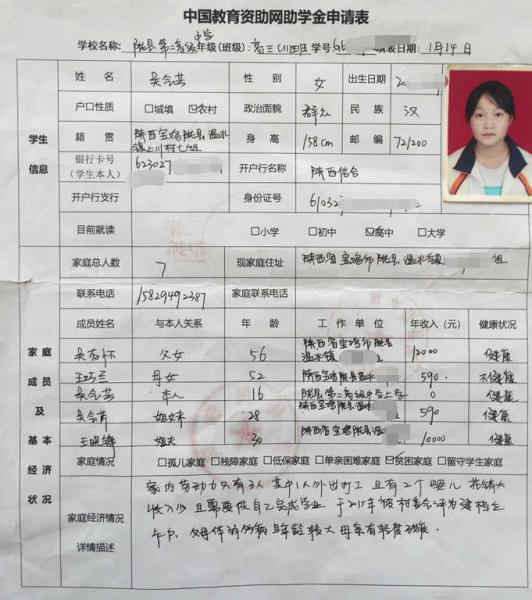 中国教育资助网助学金申请表
学校名称: 陇县第二高级中学 年级(班级): 高三 班 学号 填表日期: 1月14日
学生信息
姓名 吴会芸 性别 女 出生日期 2
户口性质 □城填 ☑农村 政治面貌 群众 民族 汉
籍贯 陕西宝鸡陇县温水镇上川村七组 身高 158cm 邮编 721200
银行卡号(学生本人) 623027 开户行名称 陕西信合
开户行支行 身份证号 61032
目前就读 □小学 □初中 ☑高中 □大学
家庭成员及基本经济状况
家庭总人数 7 现家庭住址 陕西省宝鸡市陇县温水镇 组
联系电话 15829492387 家庭联系电话
成员姓名 与本人关系 年龄 工作单位 年收入(元) 健康状况
吴 怀 父女 56 陕西省宝鸡市陇县温水镇 12000 健康
王巧兰 母女 52 陕西宝鸡陇县温水 590 不健康
吴会芸 本人 16 陇县第二高级中学上学 0 健康
吴会 姐妹 28 陕西宝鸡陇县温水 590 健康
王 姐夫 30 陕西省宝鸡陇县温 10000 健康
家庭情况 □孤儿家庭 □残障家庭 □低保家庭 □单亲困难家庭 ☑贫困家庭 □留守学生家庭
家庭经济情况详情描述
家内劳动力只有3人 其中1人外出打工 且有2个婴儿 花销大
收入少且需要供自己完成学业 于2015年被村委会评为建档立
卡户。父母体弱伤病且年龄较大母亲有轻度残疾。